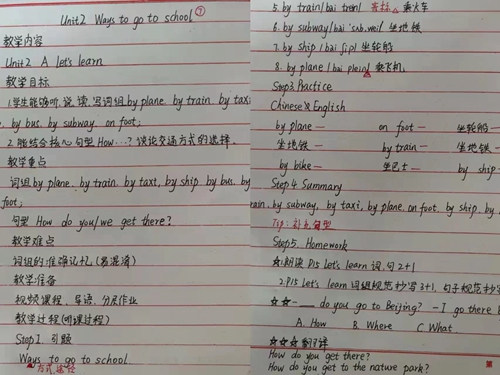 Unit2 Ways to go to school ⑦
教学内容
Unit2 A Let's learn
教学目标
1.学生能够听、说、读、写词组by plane. by train. by taxi
by bus. by subway. on foot;
2.能结合核心句型 How…? 谈论交通方式的选择。
教学重点
词组by plane. by train. by taxi, by ship by bus. by
foot;
句型 How do you/we get there?
教学难点
词组的准确记忆(易混淆)
教学准备
视频课程、导语、分层作业
教学过程(明课过程)
Step1. 引题
Ways to go to school
方式 途径
5. by train/bai trein/ 音标 乘火车
6. by subway/bai 'sʌb.wei/ 坐地铁
7. by ship /bai ʃip/ 坐轮船
8. by plane /bai plein/ 乘飞机
Step3 Practice
Chinese & English
by plane — on foot — 坐轮船 —
坐地铁 — by train — 坐地铁 —
by bike — 坐巴士 — by ship
Step4 Summary
rain. by subway. by taxi, by plane. on foot. by ship. by
Tip: 补充句型
Step5. Homework
☆1.朗读 P15 Let's learn 词、句 2+1
2.P15 Let's learn 词组规范抄写3+1, 句子规范抄写
☆☆-___ do you go to Beijing? - I go there
A. How B. Where C. What
☆☆☆ 翻译
How do you get there?
How do you get to the nature park?